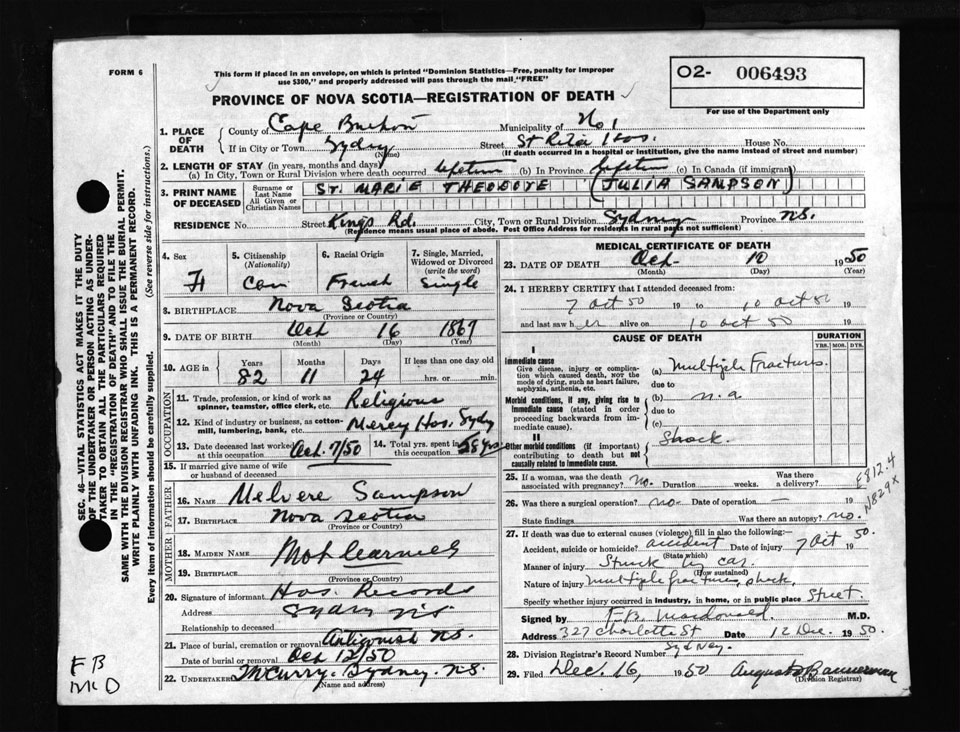 FORM 6
This form if placed in an envelope, on which is printed "Dominion Statistics—Free, penalty for improper
use $300," and properly addressed will pass through the mail "FREE"
O2- 006493
For use of the Department only
PROVINCE OF NOVA SCOTIA—REGISTRATION OF DEATH
1. PLACE OF DEATH
County of Cape Breton Municipality of No 1
If in City or Town Sydney (Name) Street St Rita Hos. House No.
(If death occurred in a hospital or institution, give the name instead of street and number)
2. LENGTH OF STAY (in years, months and days)
(a) In City, Town or Rural Division where death occurred lifetime (b) In Province lifetime (c) In Canada (if immigrant)
3. PRINT NAME OF DECEASED
Surname or Last Name ST. MARIE THEODOTE (JULIA SAMPSON)
All Given or Christian Names
RESIDENCE No. Street Kings Rd. City, Town or Rural Division Sydney Province N.S.
(Residence means usual place of abode. Post Office Address for residents in rural parts not sufficient)
4. Sex F
5. Citizenship (Nationality) Can
6. Racial Origin French
7. Single, Married, Widowed or Divorced (write the word) Single
8. BIRTHPLACE Nova Scotia
(Province or Country)
9. DATE OF BIRTH Oct 16 1867
(Month) (Day) (Year)
10. AGE in Years 82 Months 11 Days 24 If less than one day old hrs. or min.
OCCUPATION
11. Trade, profession, or kind of work as spinner, teamster, office clerk, etc. Religious
12. Kind of industry or business, as cotton-mill, lumbering, bank, etc. Mercy Hos. Sydy
13. Date deceased last worked at this occupation Oct 7/50
14. Total yrs. spent in this occupation 58 yrs
15. If married give name of wife or husband of deceased
FATHER
16. NAME Melvere Sampson
17. BIRTHPLACE Nova Scotia
(Province or Country)
MOTHER
18. MAIDEN NAME Not learned
19. BIRTHPLACE
(Province or Country)
20. Signature of informant Hos. Records
Address Sydney N.S.
Relationship to deceased
21. Place of burial, cremation or removal Antigonish N.S.
Date of burial or removal Oct 12/50
22. UNDERTAKER McCurry. Sydney. N.S.
(Name and address)
MEDICAL CERTIFICATE OF DEATH
23. DATE OF DEATH Oct 10 1950
(Month) (Day) (Year)
24. I HEREBY CERTIFY that I attended deceased from:
7 Oct 50 19 to 10 Oct 50 19
and last saw her alive on 10 Oct 50 19
CAUSE OF DEATH
DURATION
YRS. MOS. DYS.
I
Immediate cause
Give disease, injury or complication which caused death, NOT the mode of dying, such as heart failure, asphyxia, asthenia, etc.
(a) Multiple Fractures.
due to
Morbid conditions, if any, giving rise to immediate cause (stated in order proceeding backwards from immediate cause).
(b) n.a
due to
(c)
II
Other morbid conditions (if important) contributing to death but not causally related to immediate cause.
Shock.
25. If a woman, was the death associated with pregnancy? No. Duration weeks. Was there a delivery?
26. Was there a surgical operation? no. Date of operation — 19
State findings Was there an autopsy? no.
E812.4
N829X
27. If death was due to external causes (violence) fill in also the following:
Accident, suicide or homicide? accident Date of injury 7 Oct 1950.
(State which)
Manner of injury Struck by car
(How sustained)
Nature of injury multiple fractures, shock.
Specify whether injury occurred in industry, in home, or in public place Street.
Signed by F.B. Macdonald M.D.
Address 327 Charlotte St Date 12 Dec. 1950.
Sydney.
28. Division Registrar's Record Number
29. Filed Dec. 16, 1950 Bannerman
(Division Registrar)
SEC. 46—VITAL STATISTICS ACT MAKES IT THE DUTY
OF THE UNDERTAKER OR PERSON ACTING AS UNDER-
TAKER TO OBTAIN ALL THE PARTICULARS REQUIRED
IN THE "REGISTRATION OF DEATH" AND TO FILE THE
SAME WITH THE DIVISION REGISTRAR WHO SHALL ISSUE THE BURIAL PERMIT.
WRITE PLAINLY WITH UNFADING INK. THIS IS A PERMANENT RECORD.
Every item of information should be carefully supplied. (See reverse side for instructions.)
FB
McD